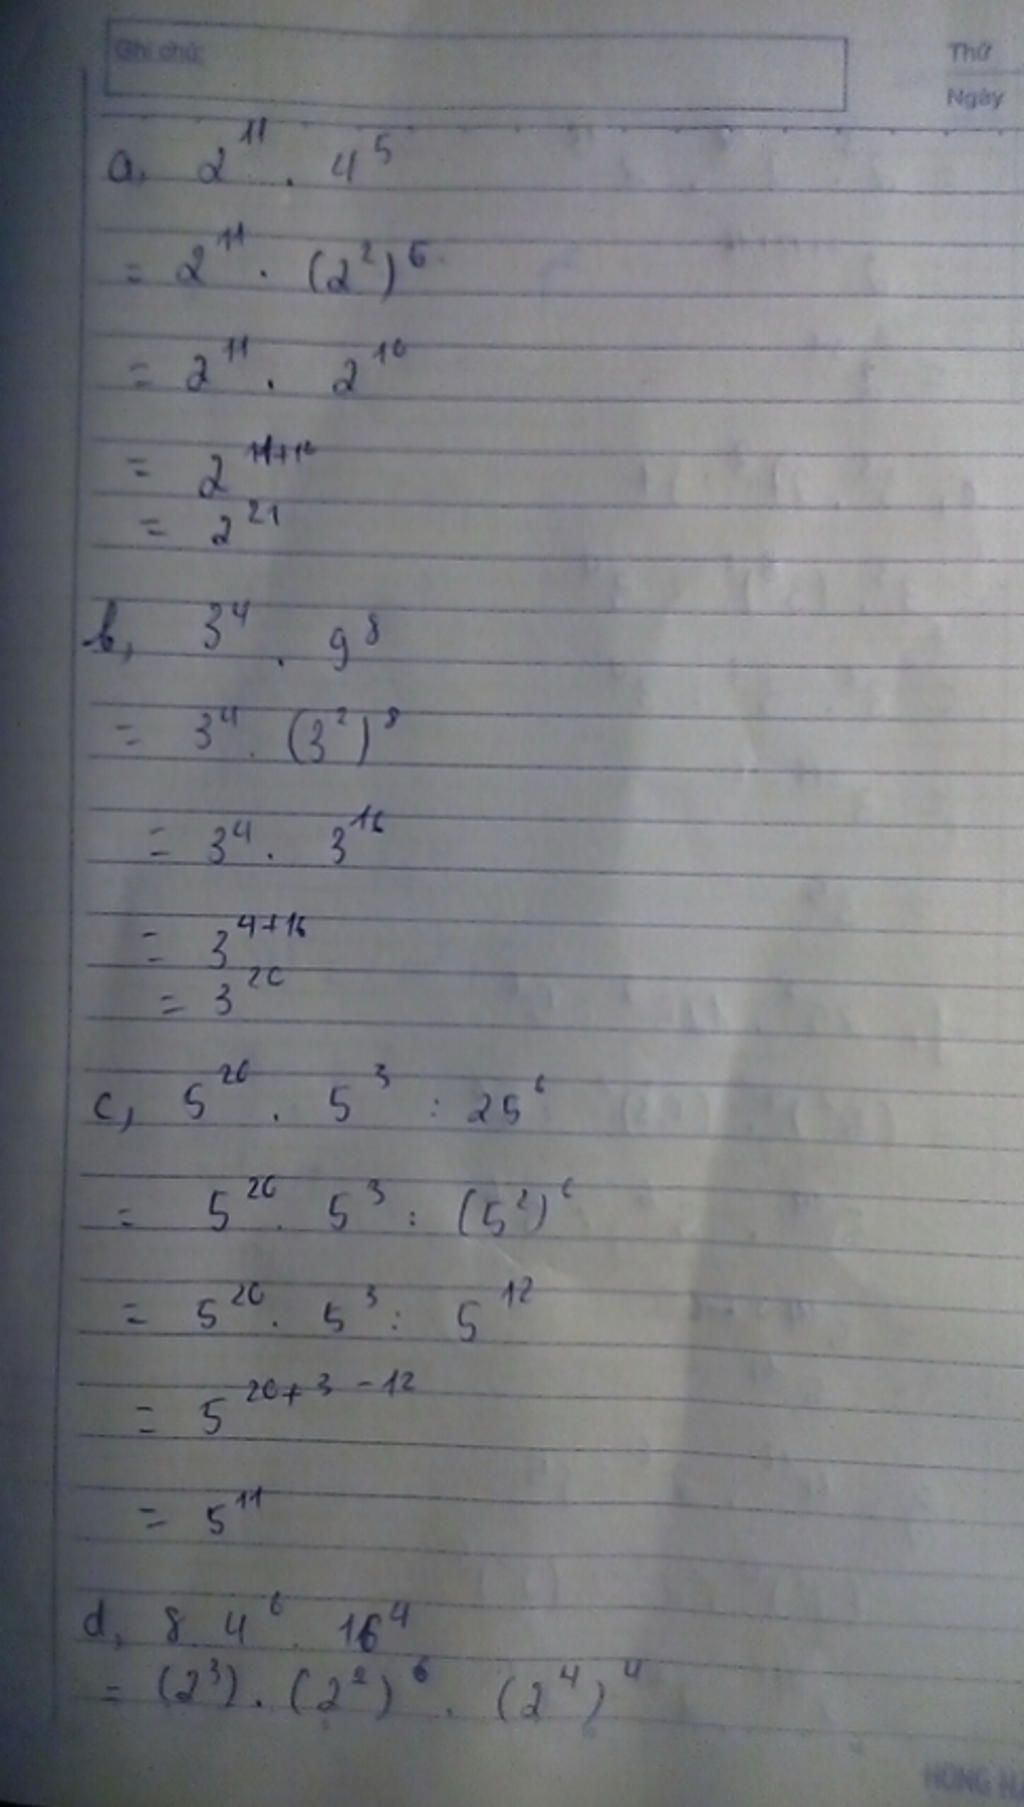 Ghi chú:
Thứ
Ngày
a, 2^11 . 4^5
= 2^11 . (2^2)^5
= 2^11 . 2^10
= 2^11+10
= 2^21
b, 3^4 . 9^8
= 3^4 . (3^2)^8
= 3^4 . 3^16
= 3^4+16
= 3^20
c, 5^20 . 5^3 : 25^6
= 5^20 . 5^3 : (5^2)^6
= 5^20 . 5^3 : 5^12
= 5^20+3-12
= 5^11
d, 8 4^6 . 16^4
= (2^3) . (2^2)^6 . (2^4)^4
HONG